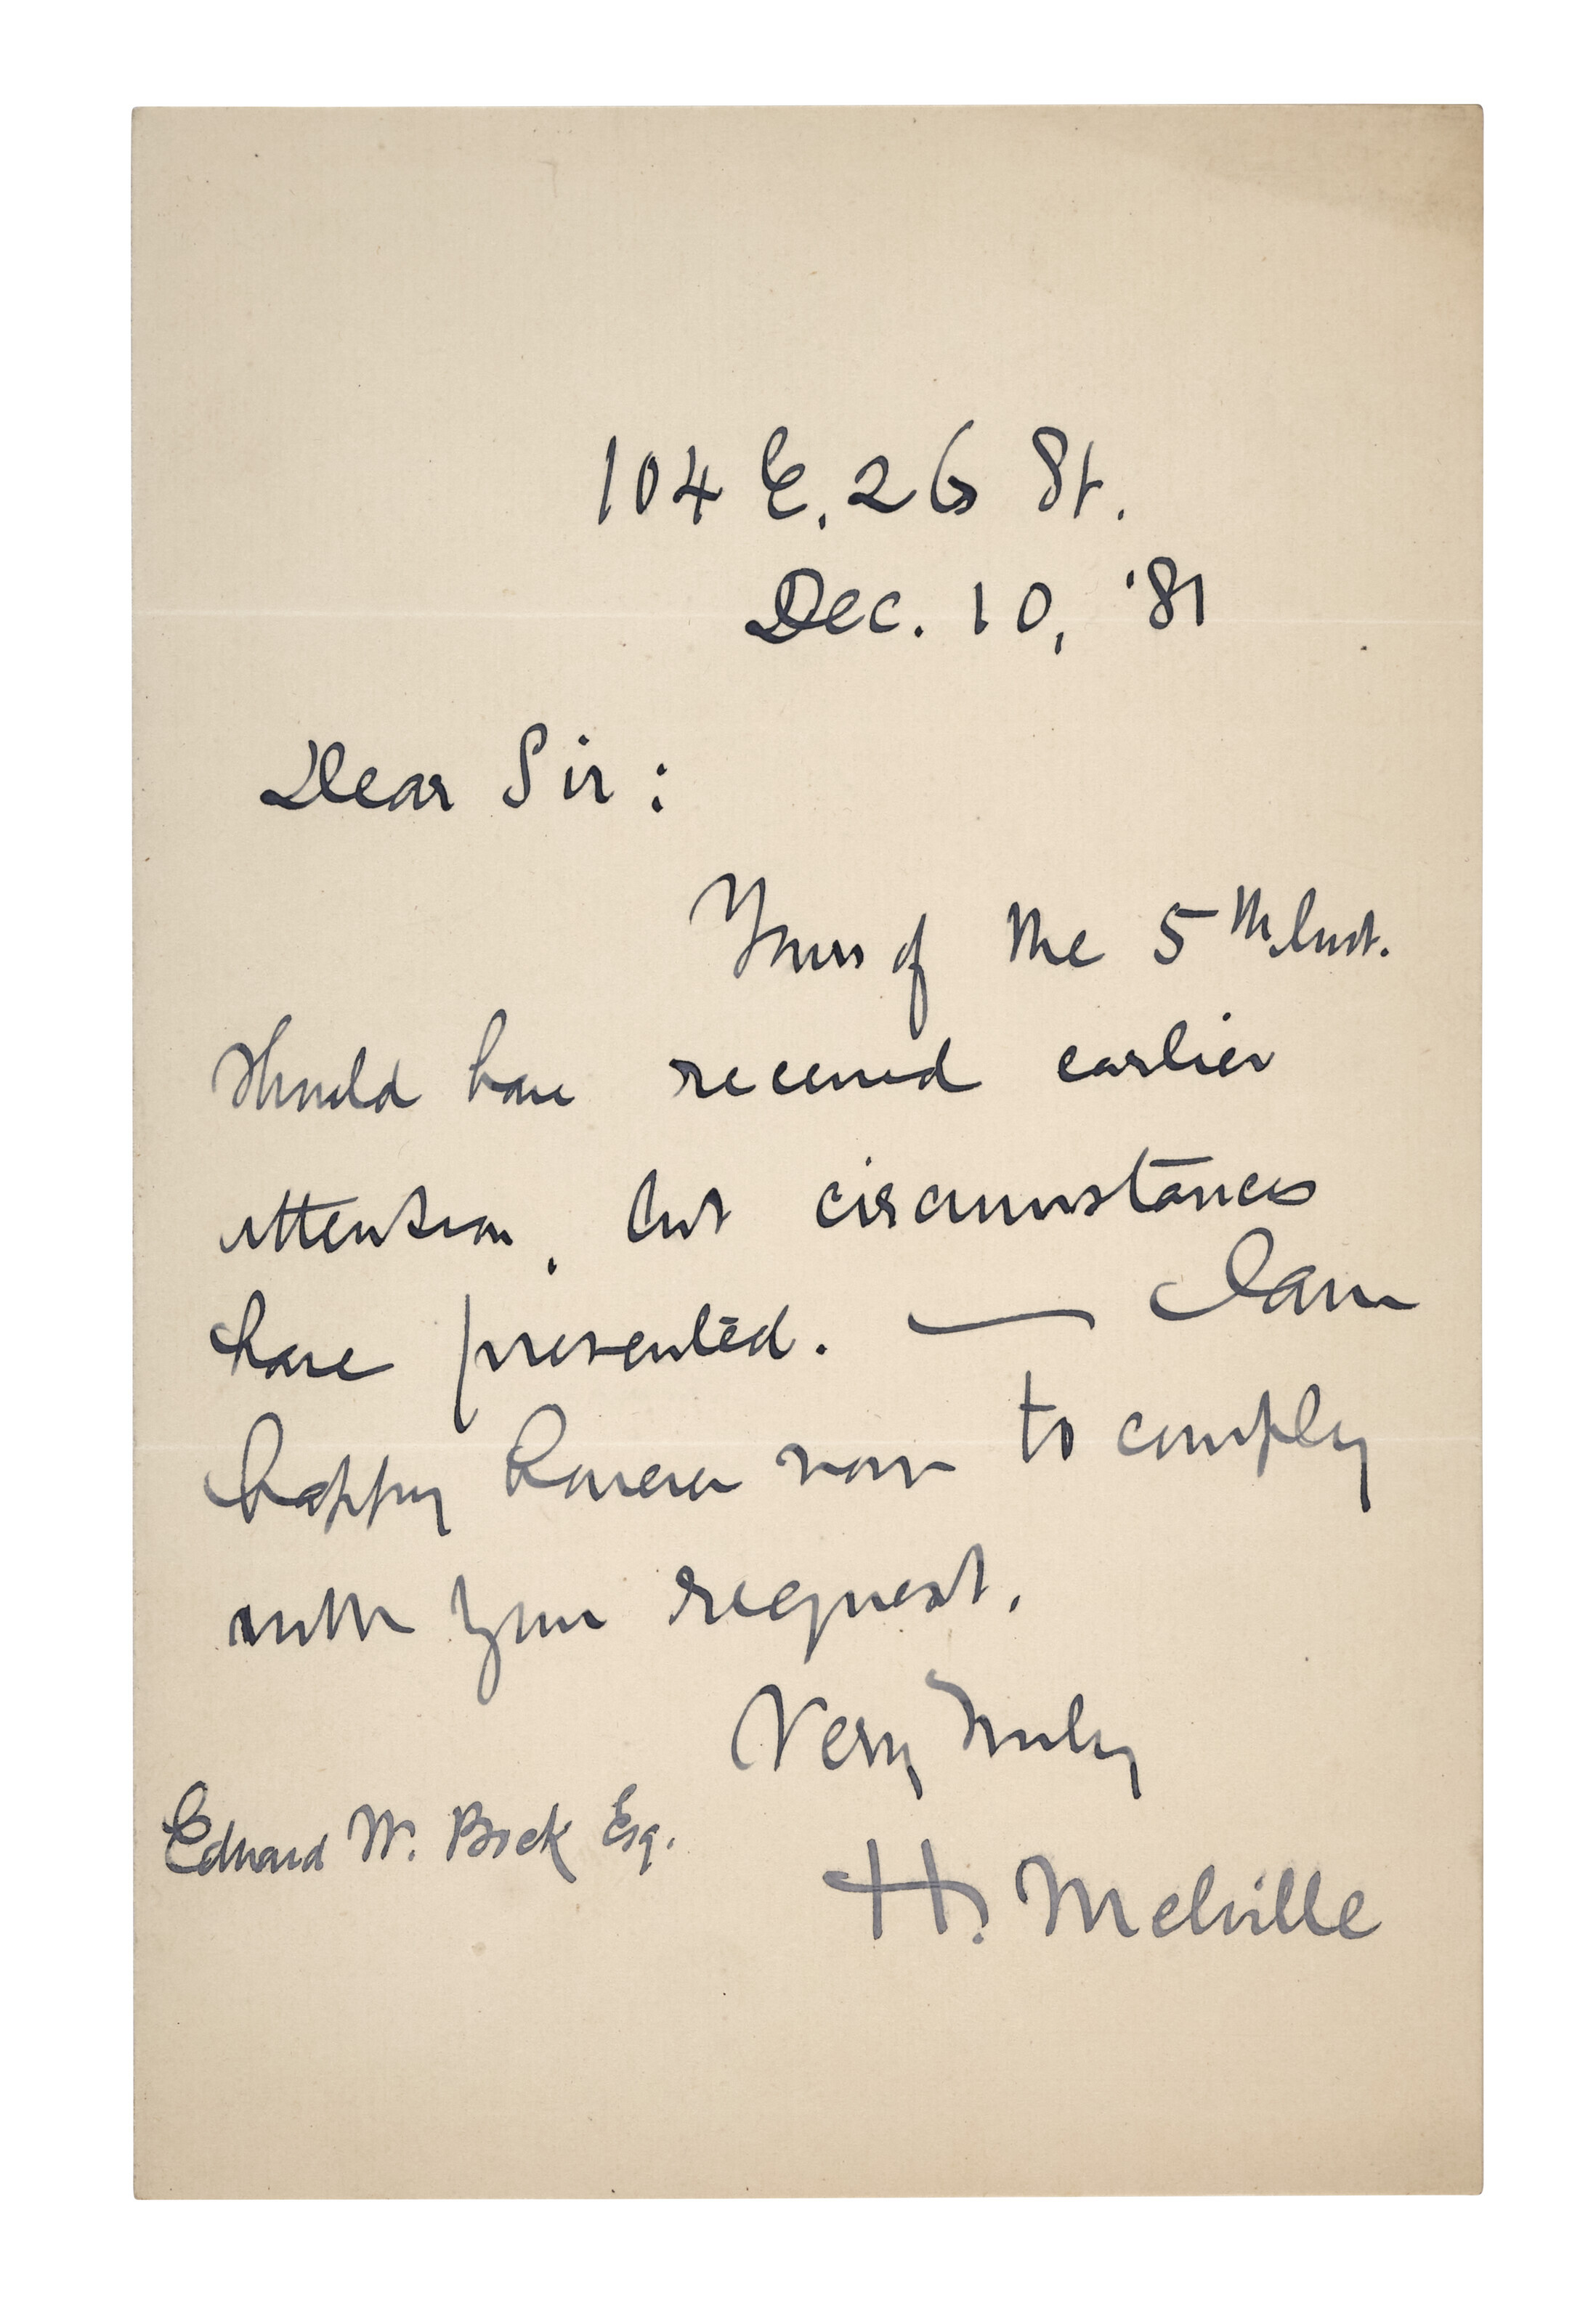 104 E. 26 St.
Dec. 10, '81
Dear Sir:
Yours of the 5th Inst.
should have received earlier
attention, but circumstances
have presented. — I am
happy however now to comply
with your request.
Very truly
Edward W. Bok Esq.
H. Melville